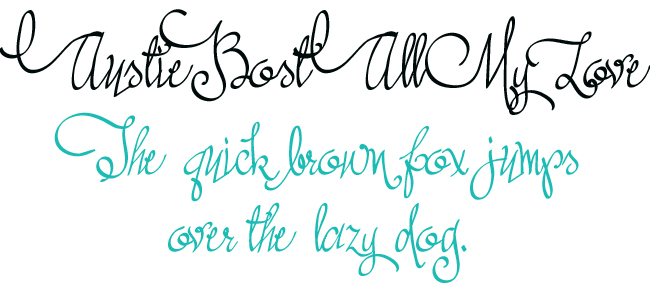 Austie Bost All My Love
The quick brown fox jumps
over the lazy dog.